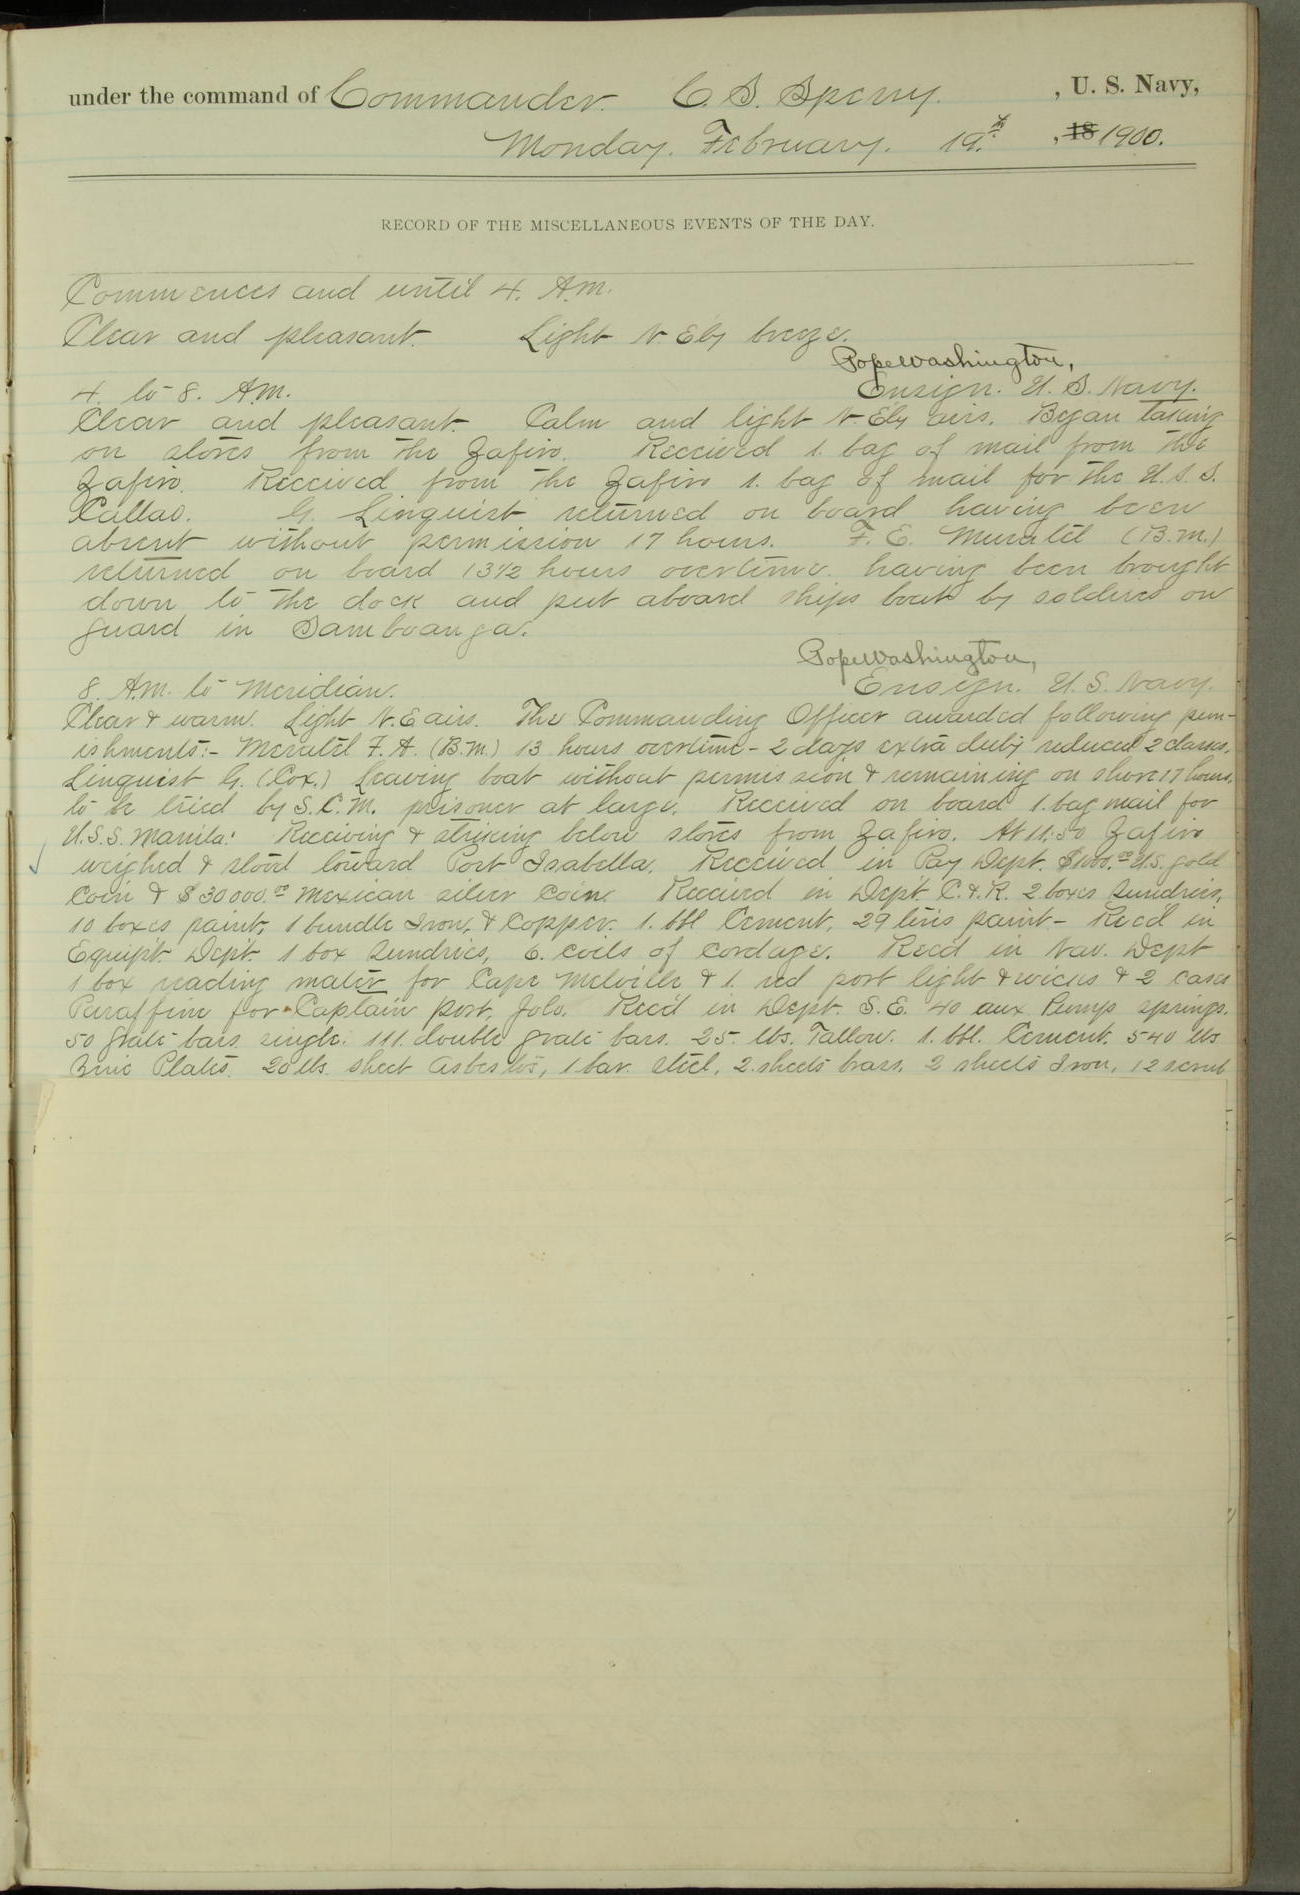 under the command of Commander. C. S. Sperry. , U. S. Navy,
Monday. February. 19th. , 18 1900.
RECORD OF THE MISCELLANEOUS EVENTS OF THE DAY.
Commences and until 4. A.M.
Clear and pleasant. Light N. Ely breeze.
Pope Washington,
Ensign. U. S. Navy.
4. to 8. A.M.
Clear and pleasant. Calm and light N. Ely airs. Began taking
on stores from the Zafiro. Received 1. bag of mail from the
Zafiro. Received from the Zafiro 1. bag of mail for the U.S.S.
Callao. G. Linquist returned on board having been
absent without permission 17 hours. F. E. (B.M.)
returned on board 13 1/2 hours overtime. having been brought
down to the dock and put aboard ships boat by soldiers on
guard in Samboanga.
Pope Washington,
Ensign. U. S. Navy.
8. A.M. to Meridian.
Clear & warm. Light N.E airs. The Commanding Officer awarded following pun-
ishments:- F. A. (B.M.) 13 hours overtime - 2 days extra duty reduced 2 classes.
Linquist G. (Cox.) Leaving boat without permission & remaining on shore 17 hours.
to be tried by S.C.M. prisoner at large. Received on board 1. bag mail for
U.S.S. Manila. Receiving & striking below stores from Zafiro. At 11.50 Zafiro
weighed & stood toward Port Isabella. Received in Pay Dept. U.S. gold
Coin & $30000.00 Mexican silver coin. Received in Dep't C. & R. 2 boxes Sundries,
10 boxes paint, 1 bundle Iron, & Copper. 1. bbl Cement, 29 tins paint - Rec'd in
Equip't Dep't 1 box Sundries, 6. coils of cordage. Rec'd in Nav. Dept
1 box reading mater for Cape Melville & 1. red port light & wicks & 2 cases
Paraffine for Captain port, Jolo. Rec'd in Dept. S.E. 40 aux Pump springs.
50 grate bars single. 111. double grate bars. 25. lbs. Tallow. 1. bbl. Cement. 540 lbs
Zinc Plates. 20 lbs. sheet asbestos, 1 bar. steel, 2. sheets brass, 2 sheets Iron, 12 scrub